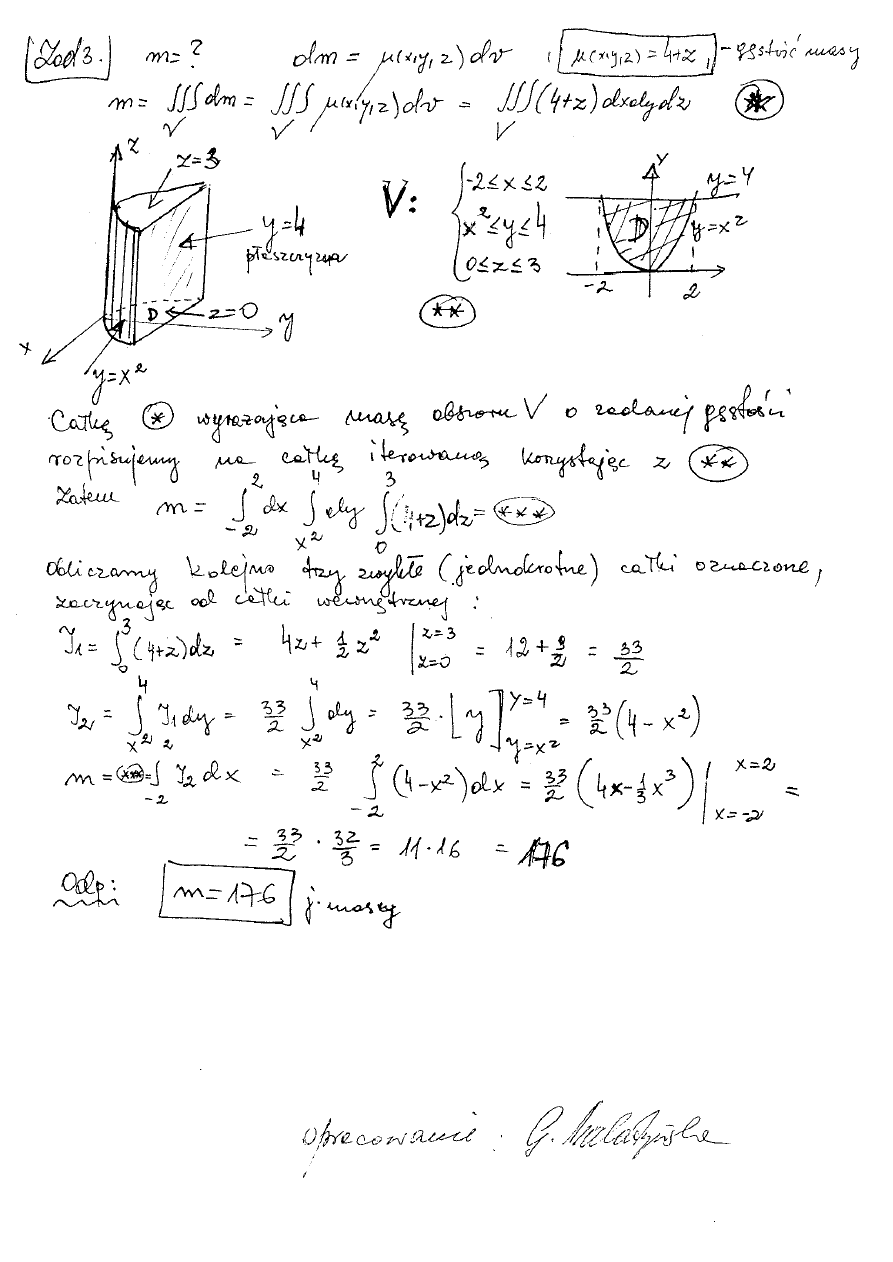 Zad 3. m=? dm = μ(x,y,z)dv , μ(x,y,z) = 4+z, - gęstość masy
m = ∭dm = ∭ μ(x,y,z)dv = ∭(4+z)dxdydz (*)
V V V
z
z=3
y=4
płaszczyzna
D z=0
y
x
y=x²
V: { -2≤x≤2
x²≤y≤4
0≤z≤3
(**)
y
y=4
D y=x²
-2 2
Całkę (*) wyrażającą masę obszaru V o zadanej gęstości
rozpisujemy na całkę iterowaną korzystając z (**)
Zatem m = ∫_{-2}^{2} dx ∫_{x²}^{4} dy ∫_{0}^{3} (4+z)dz = (***)
Obliczamy kolejno trzy zwykłe (jednokrotne) całki oznaczone,
zaczynając od całki wewnętrznej :
J₁ = ∫_{0}^{3} (4+z)dz = 4z + 1/2 z² |_{z=0}^{z=3} = 12 + 9/2 = 33/2
J₂ = ∫_{x²}^{4} J₁ dy = 33/2 ∫_{x²}^{4} dy = 33/2 · [y]_{y=x²}^{y=4} = 33/2 (4 - x²)
m = (***) = ∫_{-2}^{2} J₂ dx = 33/2 ∫_{-2}^{2} (4-x²)dx = 33/2 (4x - 1/3 x³) |_{x=-2}^{x=2} =
= 33/2 · 32/3 = 11·16 = 176
Odp: m=176 j. masy
opracowanie : G.